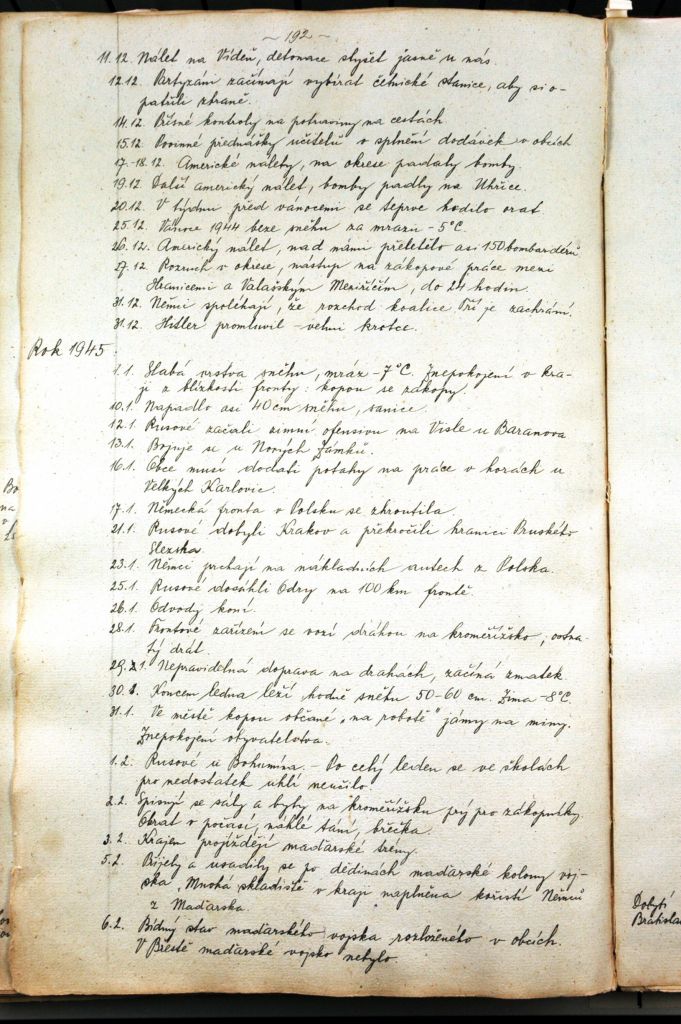 ~ 192 ~
11.12. Nálet na Vídeň, detonace slyšet jasně u nás.
12.12. Partyzáni začínají vybírat četnické stanice, aby si o-
patřili zbraně.
14.12. Přísné kontroly na potraviny na cestách
15.12. Povinné přednášky učitelů o splnění dodávek v obcích
17.-18.12. Americké nálety, na okrese padaly bomby.
19.12. Další americký nálet, bomby padly na Uhřice.
20.12. V týdnu před vánocemi se teprve hodilo orat
25.12. Vánoce 1944 beze sněhu za mrazu -5°C.
26.12. Americký nálet, nad námi přeletělo asi 150 bombardérů
27.12. Rozruch v okrese, nástup na zákopové práce mezi
Hranicemi a Valašským Meziříčím, do 24 hodin.
31.12. Němci spoléhají, že rozchod koalice Tří je zachrání.
31.12. Hitler promluvil - velmi krotce.
Rok 1945.
1.1. Slabá vrstva sněhu, mráz -7°C. Znepokojení v kra-
ji z blízkosti fronty: kopou se zákopy.
10.1. Napadlo asi 40 cm sněhu, sanice.
12.1. Rusové začali zimní ofensivu na Visle u Baranova
13.1. Bojuje se u Nových Zámků.
16.1. Obce musí dodati potahy na práce v horách u
Velkých Karlovic.
17.1. Německá fronta v Polsku se zhroutila.
21.1. Rusové dobyli Krakov a překročili hranici Pruského
Slezska.
23.1. Němci prchají na nákladních autech z Polska.
25.1. Rusové dosáhli Odry na 100 km frontě.
26.1. Odvody koní.
28.1. Frontové zařízení se vozí dráhou na kroměřížsko, ostna-
tý drát
29.1. Nepravidelná doprava na drahách, začíná zmatek
30.1. Koncem ledna leží hodně sněhu 50-60 cm. Zima -8°C.
31.1. Ve městě kopou občané „na robotě" jámy na miny.
Znepokojení obyvatelstva.
1.2. Rusové u Bohumína. - Po celý leden se ve školách
pro nedostatek uhlí neučilo.
2.2. Spisují se sály a byty na kroměřížsku prý pro zákopníky.
Obrat v počasí, náhlé tání, břečka.
3.2. Krajem projíždějí maďarské trény.
5.2. Přijely a usadily se po dědinách maďarské kolony voj-
ska. Mnohá skladiště v kraji naplněna kořistí Němců
z Maďarska.
6.2. Bídný stav maďarského vojska rozloženého v obcích.
V Břestě maďarské vojsko nebylo.
Dobytí
Bratislav